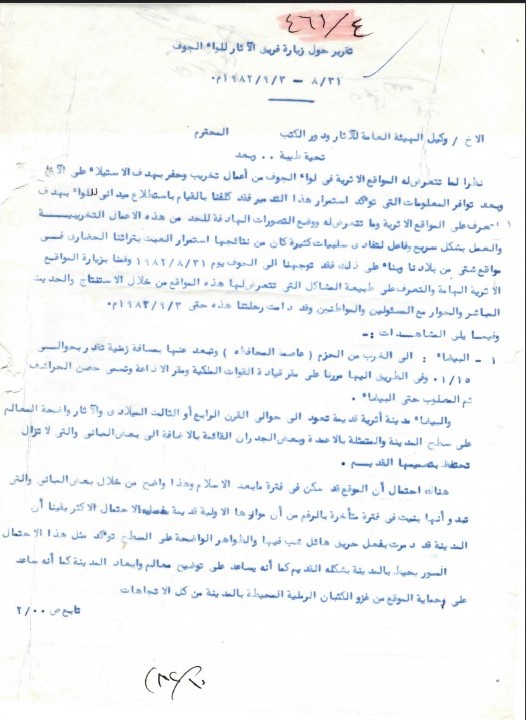 ٤٦١/٤
تقرير حول زيارة فريق الآثار للواء الجوف
٨/٣١ - ١٩٨٢/٩/٣م٠
الاخ / وكيل الهيئة العامة للآثار ودور الكتب المحترم
تحية طيبة ٠٠ وبعد
نظرا لما تتعرض له المواقع الاثرية في لواء الجوف من أعمال تخريب وحفر بهدف الاستيلاء على الآثار
وبعد توافر المعلومات التي تؤكد استمرار هذا التدمير فقد كلفنا بالقيام باستطلاع ميداني للواء بهدف
التعرف على المواقع الاثرية وما تتعرض له ووضع التصورات الهادفة للحد من هذه الاعمال التخريبيــة
والعمل بشكل سريع وفاعل لتفادي سلبيات كثيرة كان من نتائجها استمرار العبث بتراثنا الحضاري فـي
مواقع شتى من بلادنا وبناء على ذلك فقد توجهنا الى الجوف يوم ١٩٨٢/٨/٣١ وقمنا بزيارة المواقع
الاثرية الهامة والتعرف على طبيعة المشاكل التي تتعرض لها هذه المواقع من خلال الاستفتاح والحديث
المباشر والحوار مع المسئولين والمواطنين وقد دامت رحلتنا هذه حتى ١٩٨٢/٩/٣م٠
وفيما يلى المشاهـدات :-
١ - البيضاء : الى الغرب من الحزم ( عاصمة المحافظة ) وتبعد عنها بمسافة زمنية تقدر بحوالـي
٠١/١٥ وفي الطريق اليها مررنا على مقر قيادة القوات الملكية ومقر الاذاعة وتسمى حصن الحراشف
ثم المصلوب حتى البيضاء ٠
والبيضاء مدينة أثرية قديمة تعود الى حوالي القرن الرابع أو الثالث الميلادي والآثار واضحة المعالم
على سطح المدينة والمتمثلة بالاعمدة وبعض الجدران القائمة بالاضافة الى بعض المباني والتي لا تزال
تحتفظ بتصميمها القديـم ٠
هناك احتمال أن الموقع قد سكن في فترة مابعد الاسلام وهذا واضح من خلال بعض المباني والتي
تبدو أنها بنيت في فترة متأخرة بالرغم من أن موادها الاولية قديمة الاحتمال الاكثر يقينا أن
المدينة قد دمرت بفعل حريق هائل شب فيها والظواهر الواضحة على السطح تؤكد مثل هذا الاحتمال
السور يحيط بالمدينة بشكله القديم كما أنه يساعد على توضيح معالم وابعاد المدينة كما أنه ساعد
على وحماية الموقع من غزو الكثبان الرملية المحيطة بالمدينة من كل الاتجاهات
تابع ص ٢/٠٠